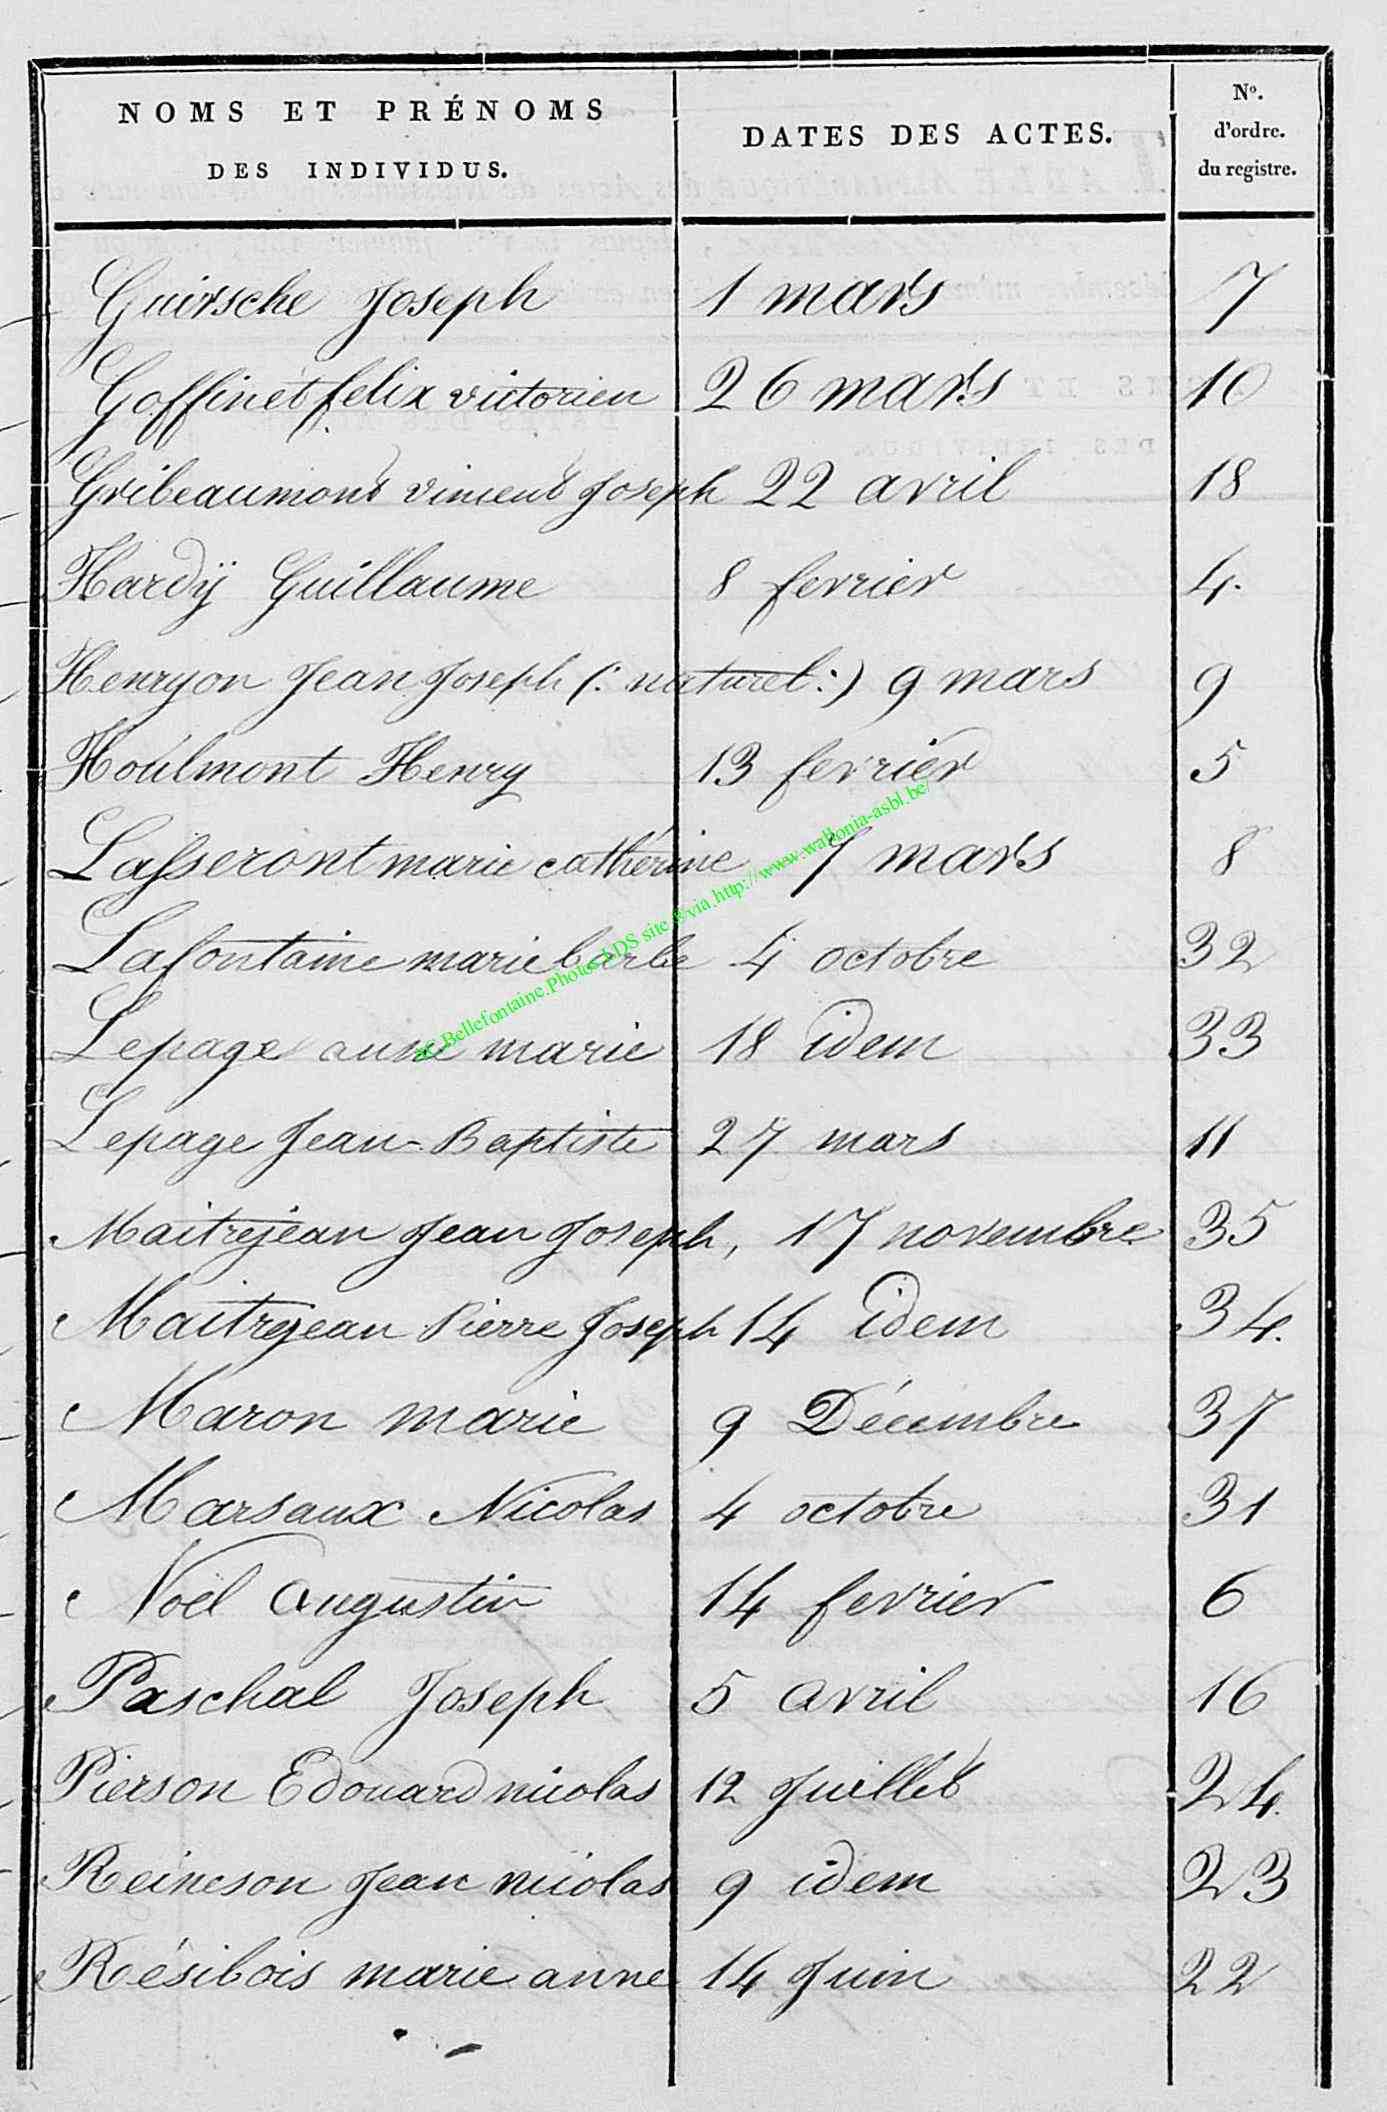 NOMS ET PRÉNOMS
DES INDIVIDUS.
DATES DES ACTES.
No.
d'ordre.
du registre.
Guirsche Joseph 1 mars 7
Goffinet felix victorien 26 mars 10
Gribeaumont vincent Joseph 22 avril 18
Hardÿ Guillaume 8 fevrier 4.
Henryon Jean Joseph (: naturel :) 9 mars 9
Houlmont Henry 13 fevrier 5
Lasseront marie catherine 7 mars 8
Lafontaine marie barbe 4 octobre 32
Lepage anne marie 18 idem 33
Lepage Jean-Baptiste 27 mars 11
Maitrejean Jean Joseph, 17 novembre 35
Maitrejean Pierre Joseph 14 idem 34.
Maron marie 9 Décembre 37
Marsaux Nicolas 4 octobre 31
Noël Augustin 14 fevrier 6
Paschal Joseph 5 avril 16
Pierson Edouard nicolas 12 Juillet 24.
Reincson Jean nicolas 9 idem 23
Résibois marie anne 14 Juin 22
Bellefontaine.Photos LDS site via http://www.wallonia-asbl.be/